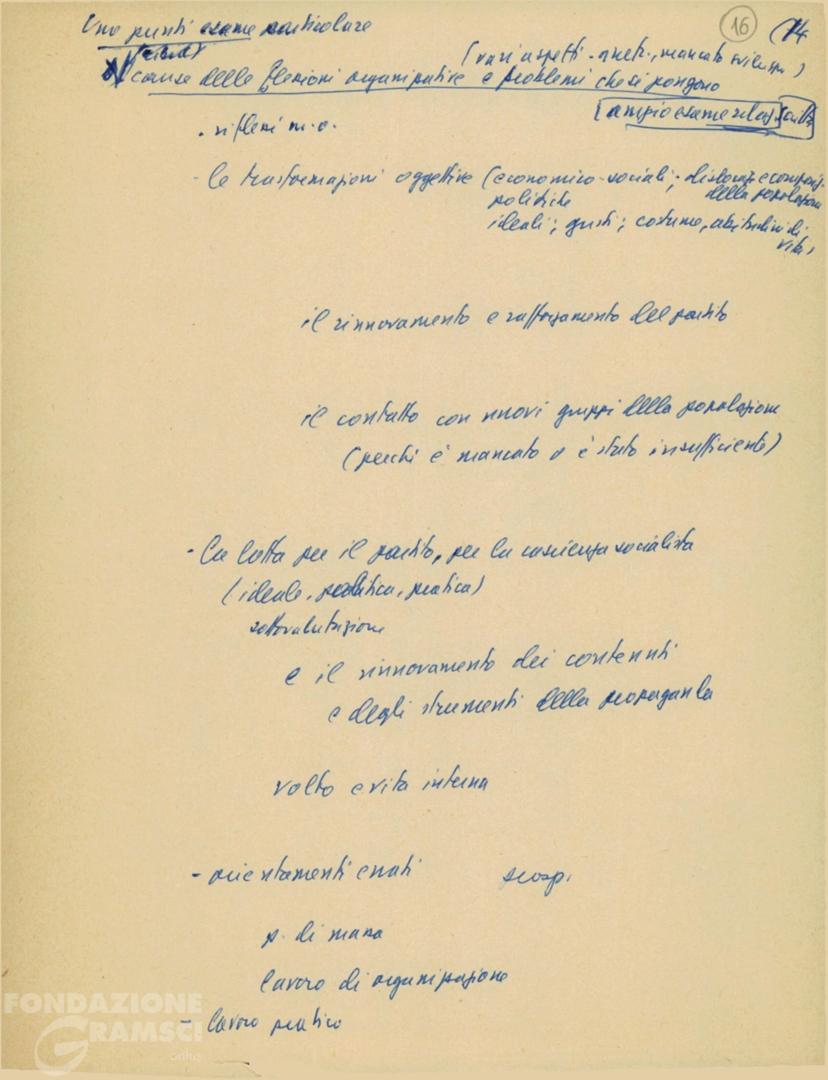 Uno punti esame particolare
16
14
(vari aspetti - arretr., mancato sviluppo)
cause delle flessioni organizzative e problemi che si pongono
(ampio esame relaz.
- riflessi m.o.
- le trasformazioni oggettive (economico-sociali; dislocaz. e composiz.
politiche della popolazione
ideali; gusti; costume, abitudini di
vita)
il rinnovamento e rafforzamento del partito
il contatto con nuovi gruppi della popolazione
(perché è mancato o è stato insufficiente)
- la lotta per il partito, per la coscienza socialista
(ideale, politica, pratica)
sottovalutazione
e il rinnovamento dei contenuti
e degli strumenti della propaganda
volto e vita interna
- orientamenti errati
p. di massa
lavoro di organizzazione
- lavoro pratico
FONDAZIONE
GRAMSCI
onlus